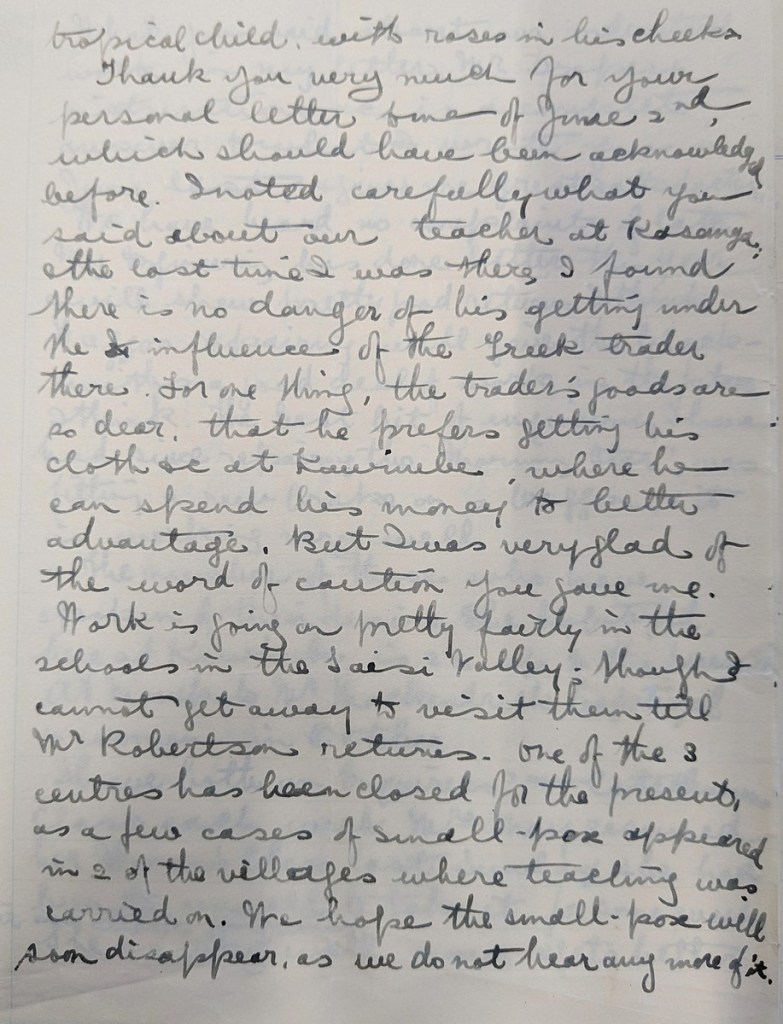 tropical child. with roses in his cheeks
Thank you very much for your
personal letter to me of June 2nd,
which should have been acknowledged
before. I noted carefully what you
said about our teacher at Kasanga;
& the last time I was there, I found
there is no danger of his getting under
the influence of the Greek trader
there. For one thing, the trader's goods are
so dear, that he prefers getting his
cloth &c at Kawimbe, where he
can spend his money to better
advantage. But I was very glad of
the word of caution you gave me.
Work is going on pretty fairly in the
schools in the Saisi Valley; though I
cannot get away to visit them till
Mr Robertson returns. One of the 3
centres has been closed for the present,
as a few cases of small-pox appeared
in 2 of the villages where teaching was
carried on. We hope the small-pox will
soon disappear, as we do not hear any more of it.